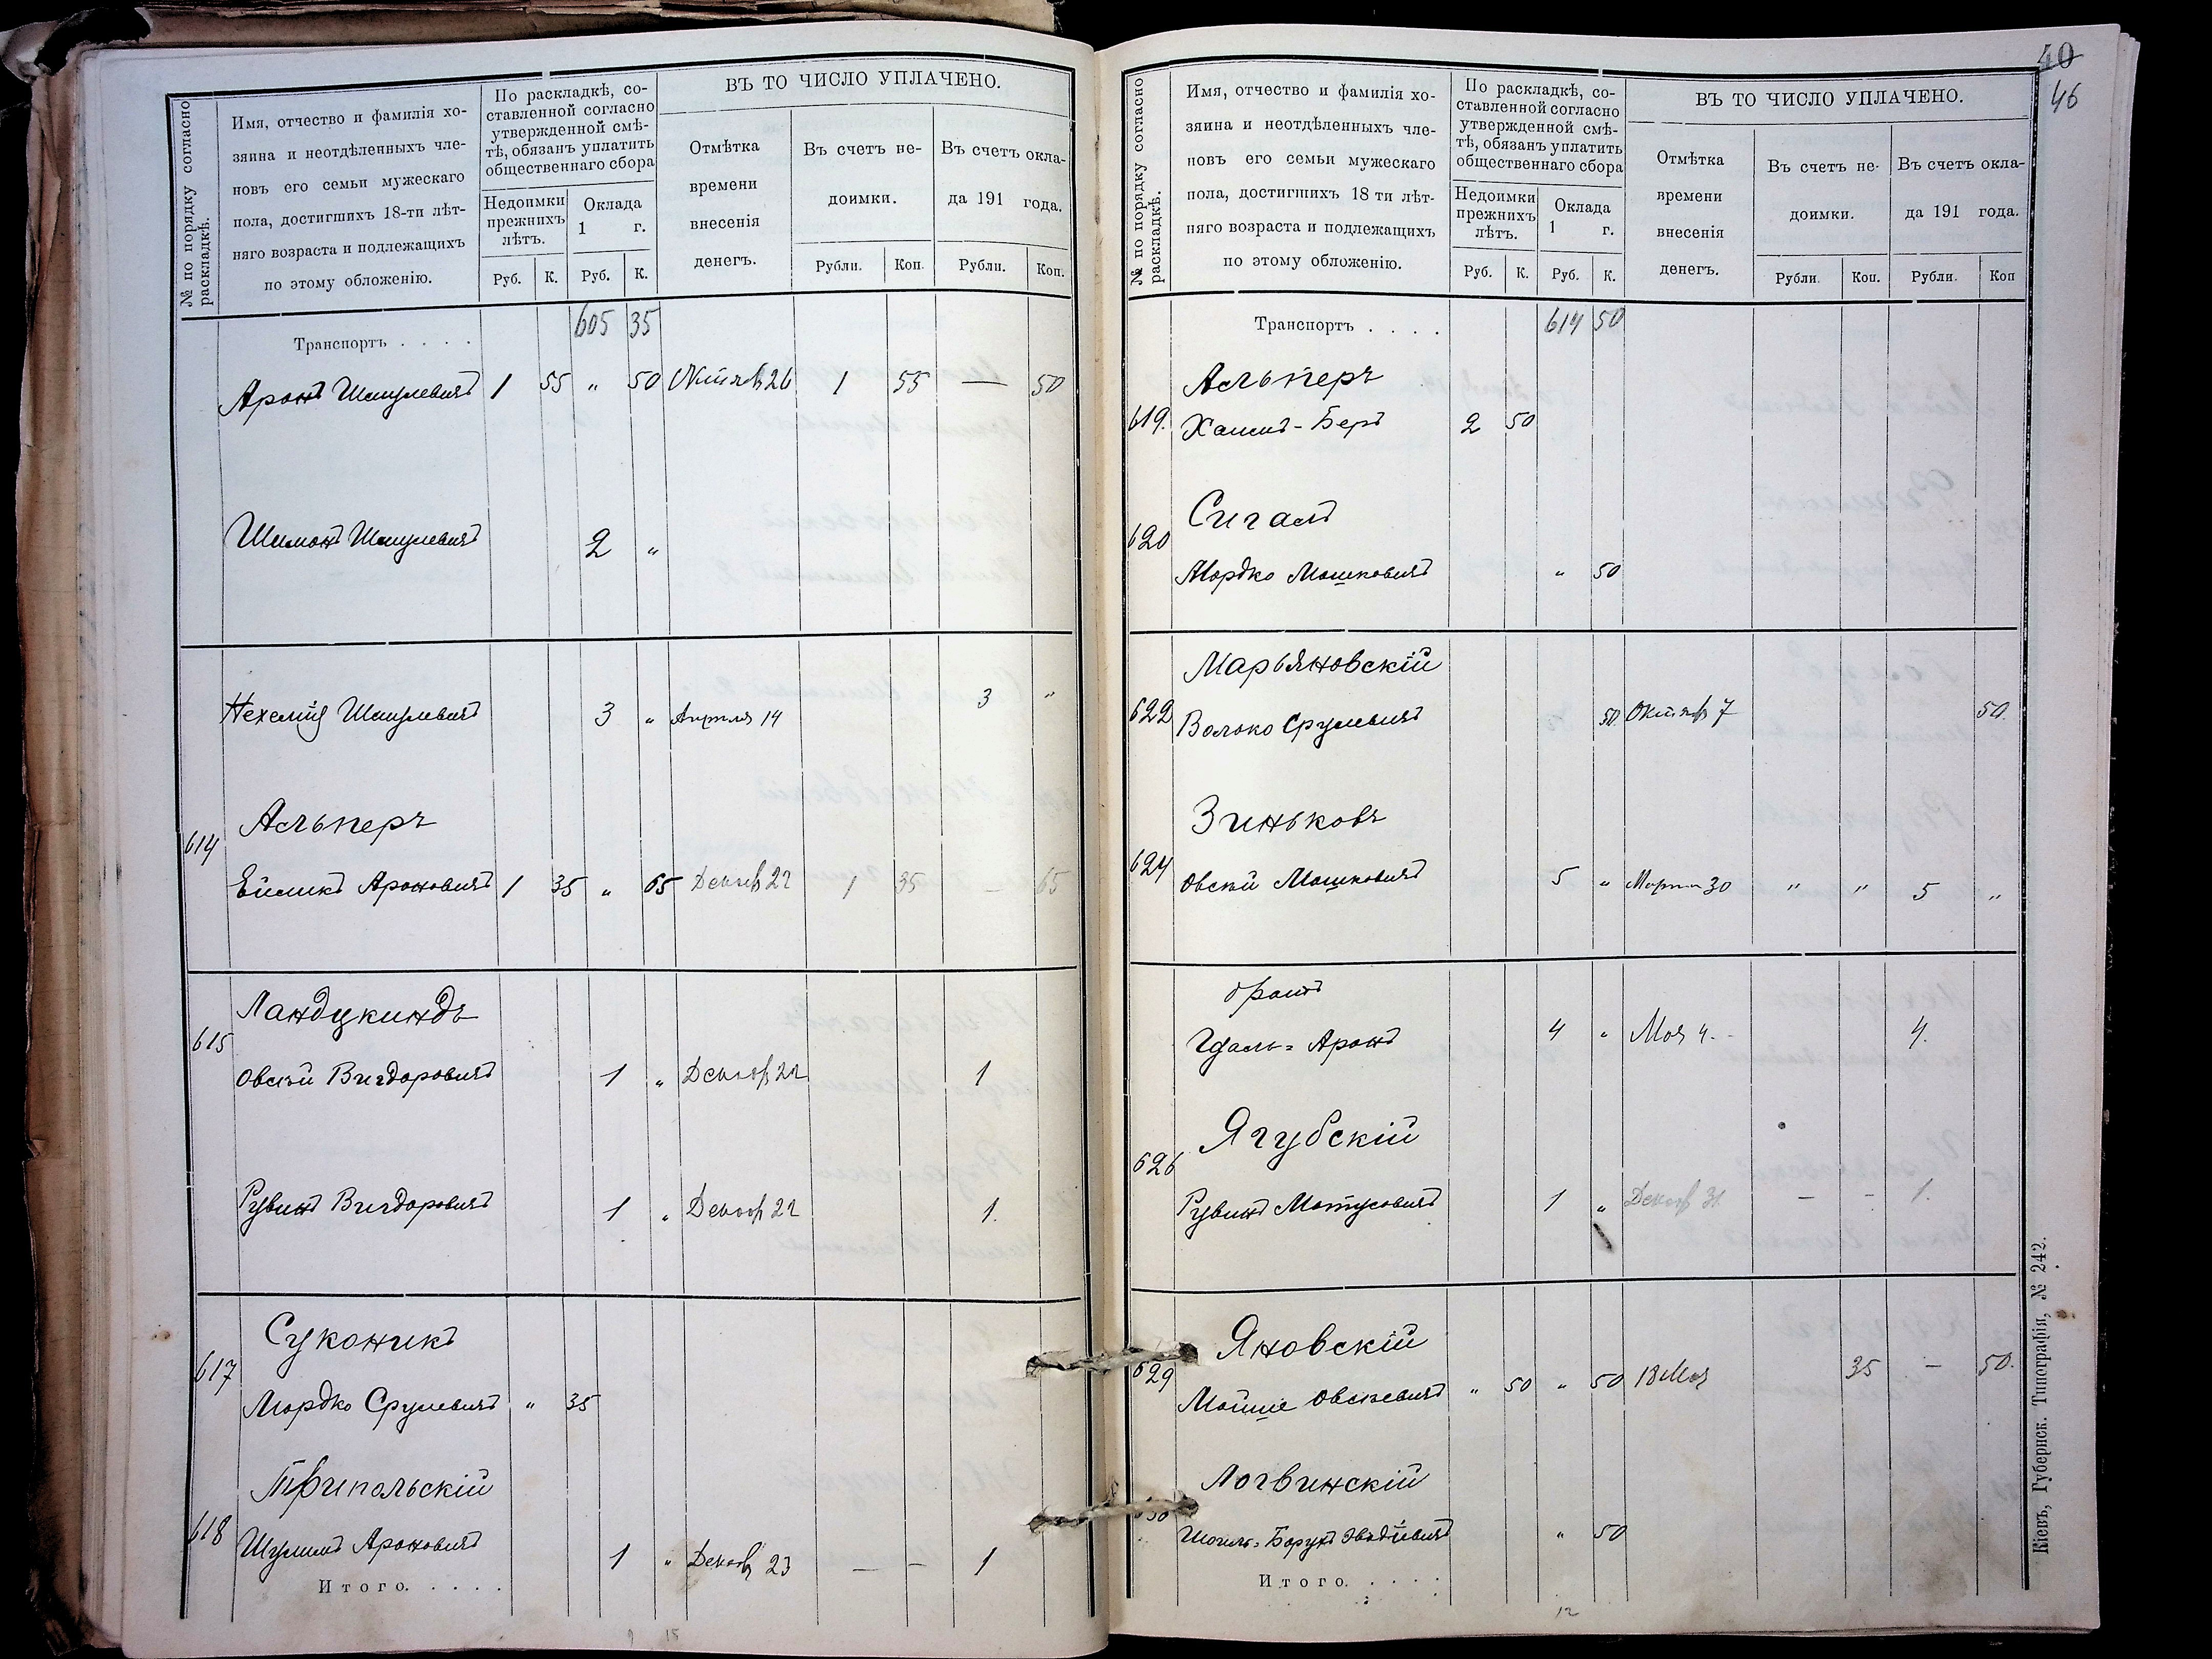 № по порядку согласно
раскладкѣ.
Имя, отчество и фамилія хо-
зяина и неотдѣленныхъ чле-
новъ его семьи мужескаго
пола, достигшихъ 18-ти лѣт-
няго возраста и подлежащихъ
по этому обложенію.
По раскладкѣ, со-
ставленной согласно
утвержденной смѣ-
тѣ, обязанъ уплатить
общественнаго сбора
Недоимки
прежнихъ
лѣтъ.
Оклада
1 г.
Руб. К. Руб. К.
ВЪ ТО ЧИСЛО УПЛАЧЕНО.
Отмѣтка
времени
внесенія
денегъ.
Въ счетъ не-
доимки.
Въ счетъ окла-
да 191 года.
Рубли. Коп. Рубли. Коп.
Транспортъ . . . . 605 35
Аронъ Шмулевичъ 1 55 „ 50 Октяб 26 1 55 — 50
Шимонъ Шмулевичъ 2 „
Нехемія Шмулевичъ 3 „ Апрѣля 14 3 „
614 Альперъ
Ейликъ Ароновичъ 1 35 „ 65 Декаб 22 1 35 – 65
615 Ландукиндъ
Овсѣй Вигдоровичъ 1 „ Декаб 22 1
Рувинъ Вигдоровичъ 1 „ Декаб 22 1.
617 Суконикъ
Мордко Срулевичъ „ 35
618 Трипольскій
Шулимъ Ароновичъ 1 „ Декаб 23 — – 1
Итого. . . . .
9 15
40
46
№ по порядку согласно
раскладкѣ.
Имя, отчество и фамилія хо-
зяина и неотдѣленныхъ чле-
новъ его семьи мужескаго
пола, достигшихъ 18 ти лѣт-
няго возраста и подлежащихъ
по этому обложенію.
По раскладкѣ, со-
ставленной согласно
утвержденной смѣ-
тѣ, обязанъ уплатить
общественнаго сбора
Недоимки
прежнихъ
лѣтъ.
Оклада
1 г.
Руб. К. Руб. К.
ВЪ ТО ЧИСЛО УПЛАЧЕНО.
Отмѣтка
времени
внесенія
денегъ.
Въ счетъ не-
доимки.
Въ счетъ окла-
да 191 года.
Рубли. Коп. Рубли. Коп
Транспортъ . . . . 614 50
Альперъ
619. Хаимъ-Беръ 2 50
620 Сигалъ
Мордко Мошковичъ „ 50
Марьяновскій
622 Волько Срулевичъ 50 Октяб 7 50.
Зиньковъ
624 Овсѣй Мошковичъ 5 „ Марта 30 „ „ 5 „
братъ
Гдаль-Аронъ 4 „ Мая 4. 4.
Ягубскій
626 Рувинъ Мотусовичъ 1 „ Декаб 31 – – 1.
Яновскій
629 Мойше Овсѣевичъ „ 50 „ 50 18 Мая 35 – 50.
Логвинскій
630 Шмиль-Борухъ „ 50
Итого. . . . .
12
Кіевъ, Губернск. Типографія, № 242.